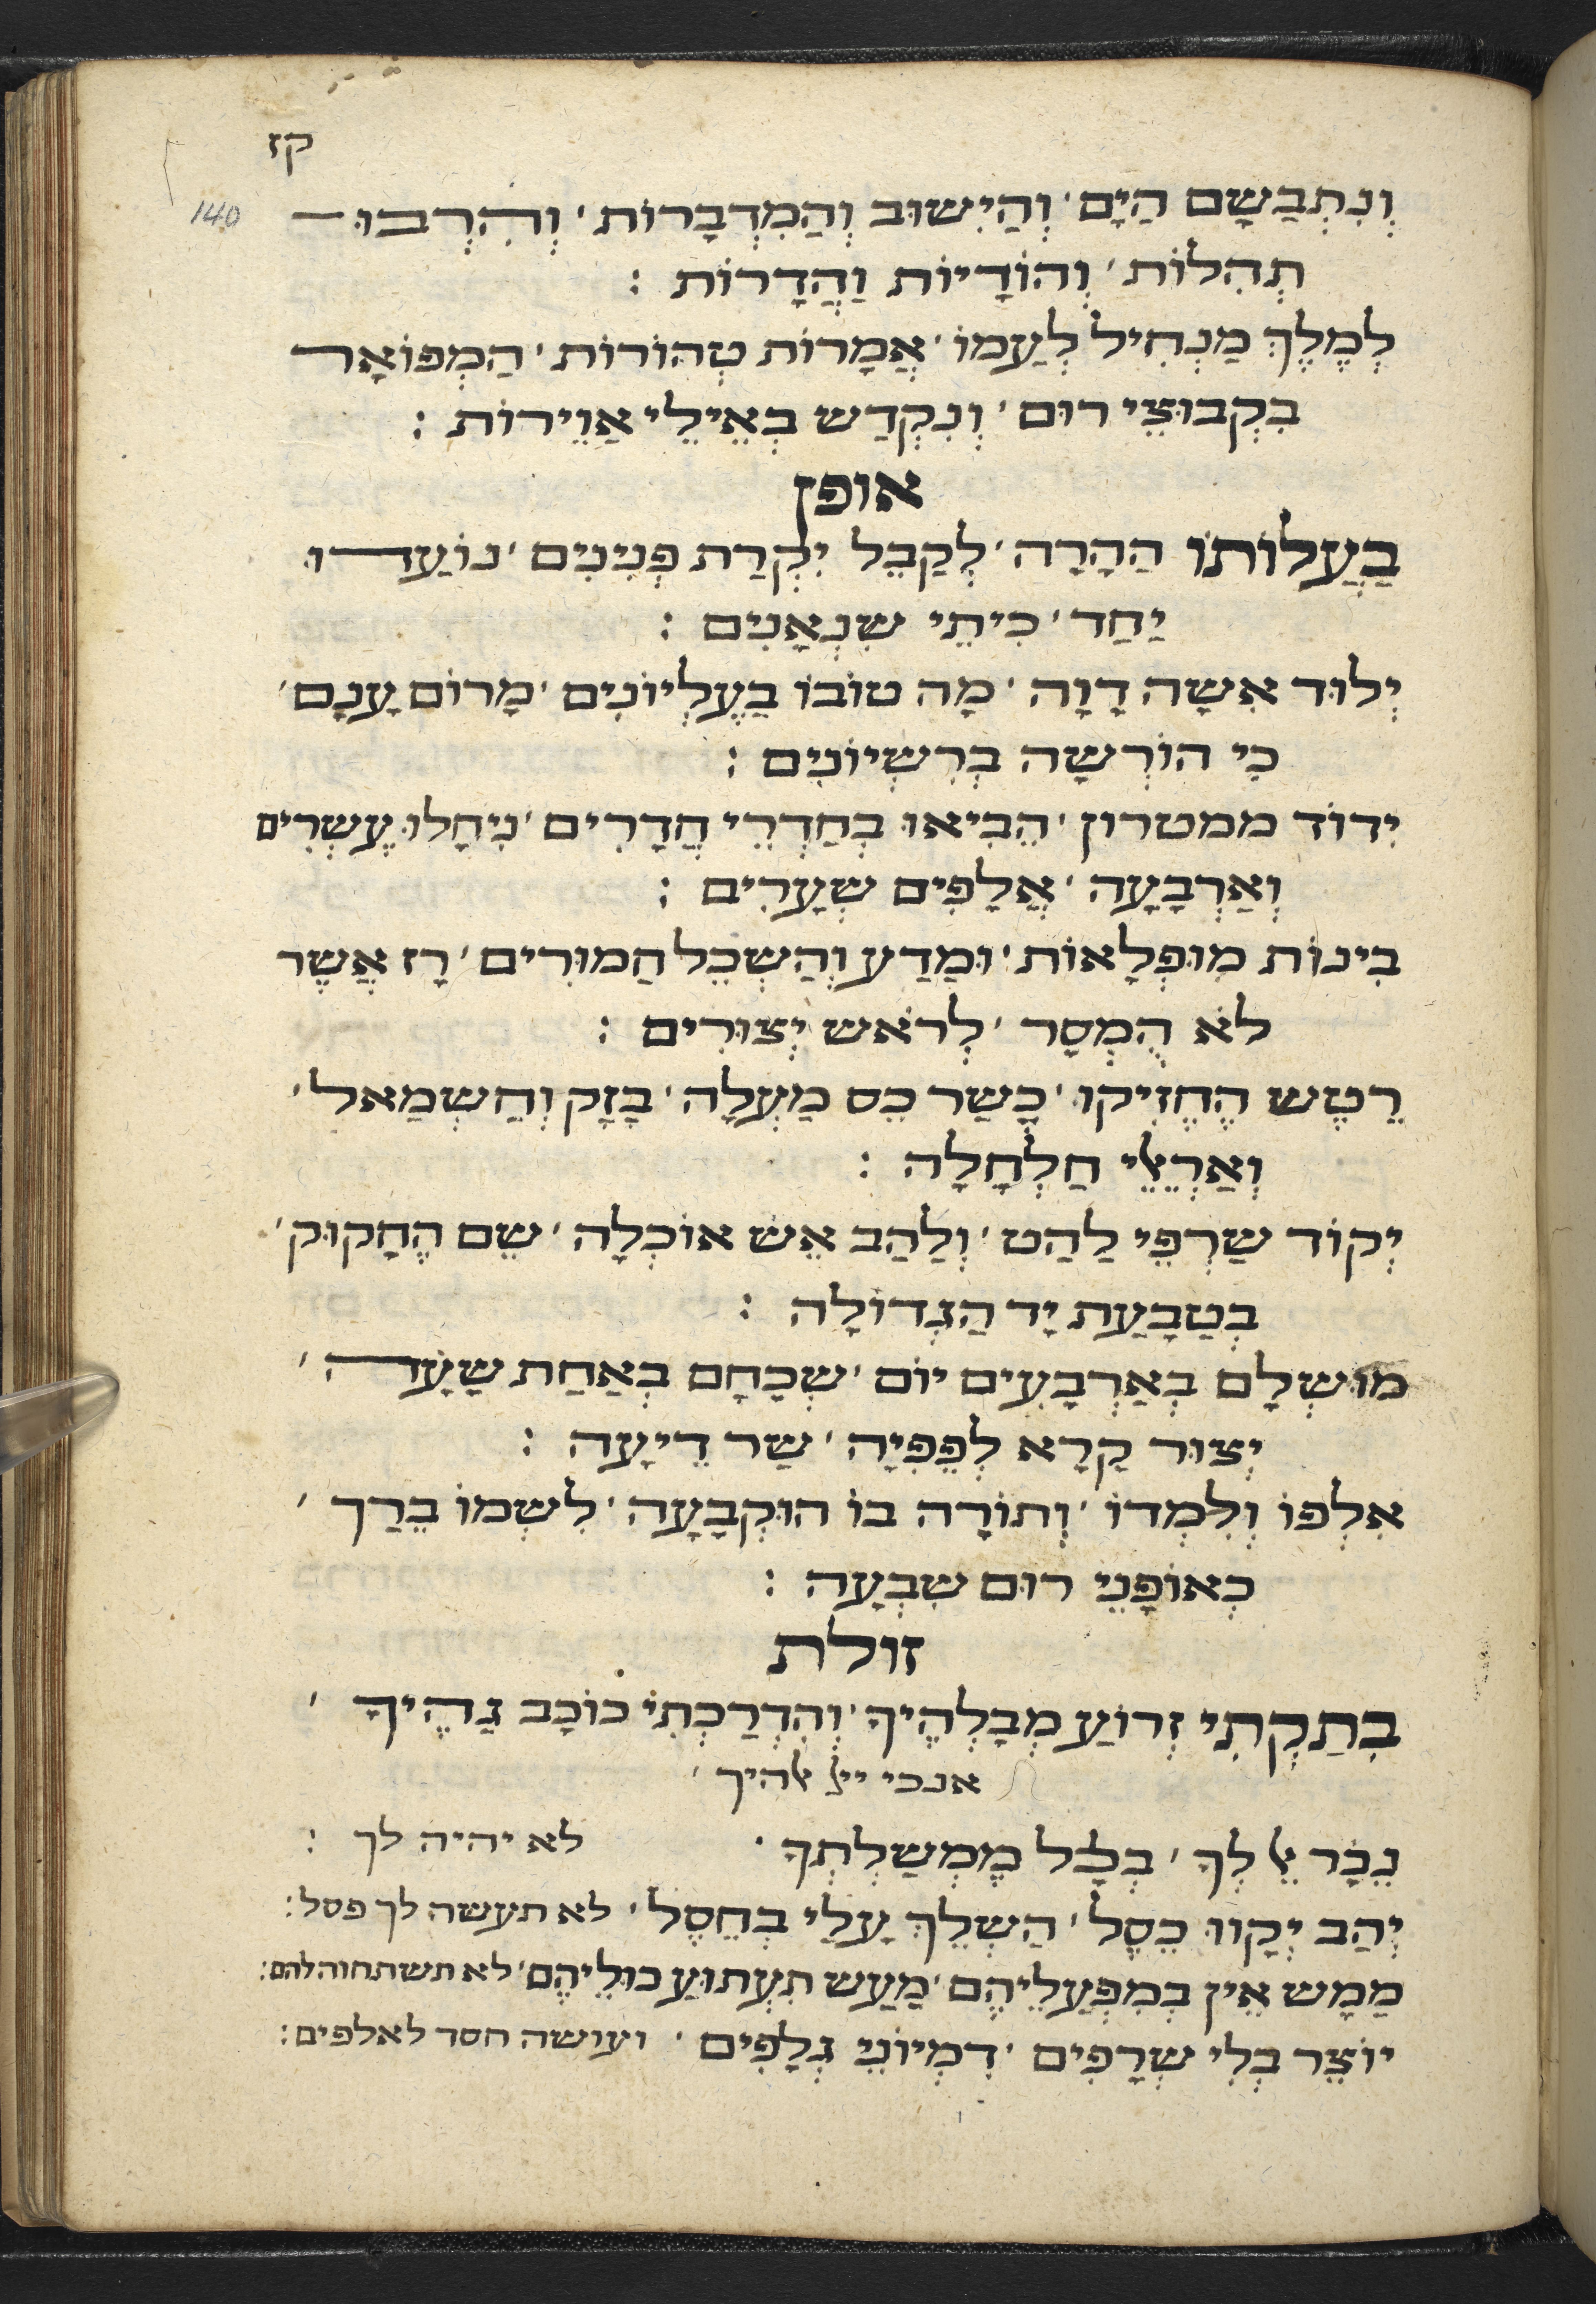 קז
140
וְנִתְבַּשָּׂם הַיָּם׳ וְהַיִשּׁוּב וְהַמִדְבָּרוֹת׳ וְהִרְבּוּ
תְהִלּוֹת׳ וְהוֹדָיוֹת וַהֲדָרוֹת :
לְמֶלֶךְ מַנְחִיל לְעַמּוֹ׳ אֲמָרוֹת טְהוֹרוֹת׳ הַמְפוֹאָר
בְּקִבּוּצֵי רוּם׳ וְנִקְדַשׁ בְּאֵילֵי אַוֵירוֹת :
אופן
בַּעֲלוֹתוֹ הַהָרָה׳ לְקַבֵּל יִקְרַת פְּנִינִים׳ נוֹעֲדוּ
יַחַד׳ כִּיתֵי שִׁנְאָנִים :
יְלוּד אִשָּׁה דָוָה׳ מָה טוֹבוֹ בָּעֶלְיוֹנִים׳ מָרוֹם עָנָם׳
כִּי הוֹרְשָׁה בְּרִשְׁיוֹנִים :
יְדוֹד ממטרון׳ הֵבִיאוּ בְּחַדְרֵי חֲדָרִים׳ נִיחָלוּ עֶשְׂרִים
וְאַרְבָּעָה׳ אֲלָפִים שְׁעָרִים :
בִּינוֹת מוּפְלָאוֹת׳ וּמַדַע וְהַשְׂכֵּל חֲמוּרִים׳ רָז אֲשֶׁר
לֹא הֻמְסָר׳ לְרֹאשׁ יְצוּרִים :
רֵטֶשׁ הֶחֱזִיקוּ׳ כָּשַׁר כֵּס מַעְלָה׳ בָּזָק וְחַשְׁמַאל׳
וְאַרְאֵלֵי חַלְחָלָה :
יְקוֹד שַׂרְפֵי לַהַט׳ וְלַהַב אֵשׁ אוֹכְלָה׳ שֵׁם הֶחָקוּק׳
בְּטַבָּעַת יָד הַגְדוֹלָה :
מוּשְׁלָם בְּאַרְבָּעִים יוֹם׳ שְׁכָחָם בְּאַחַת שָׁעָה׳
יְצוּר קָרָא לְפֵפִיָה׳ שַׂר דֵיעָה :
אִלְּפוֹ וְלִמְּדוֹ׳ וְתוֹרָה בּוֹ הוּקְבָּעָה׳ לִשְׁמוֹ בֵּרַךְ׳
כְּאוֹפָנֵי רוּם שִׁבְעָה :
זולת
בְּתַקְתִּי זְרוֹעַ מְבָלְהֶיךָ׳ וְהִדְרַכְתִּי כּוֹכָב נַהֶיךָ׳
אנכי ייי אלהיך׳
נֵכָר אֵל לְךָ׳ בְּכָל מֶמְשַׁלְתְּךָ׳ לא יהיה לך :
יְהַב יְקָווּ כֶּסֶל׳ הַשְׁלֵךְ עָלַי בְּחֵסֶל׳ לא תעשה לך פסל:
מַמָּשׁ אֵין בְּמִפְעָלֵיהֶם׳ מַעַשׂ תִעְתּוּעַ כּוּלֵיהֶם׳ לא תשתחוה להם:
יוֹצֵר בְּלִי שְׂרָפִים׳ דִמְיוֹנֵי גְלָפִים׳ ועושה חסד לאלפים: